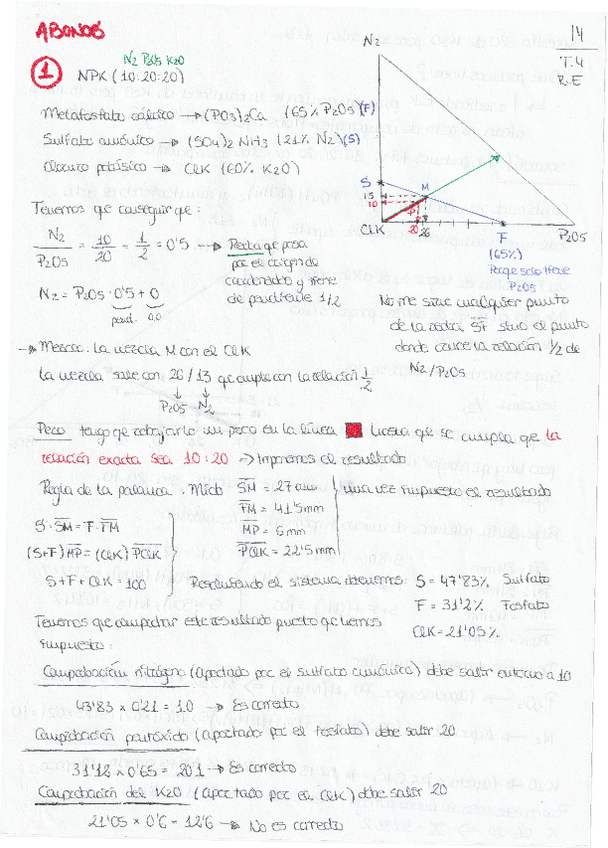 ABONOS
14
T.4
R.E
N2 P2O5 K2O
① NPK (10:20:20)
Metafosfato cálcico → (PO3)2Ca (65% P2O5)(F)
Sulfato amónico → (SO4)2 NH3 (21% N2)(S)
Cloruro potásico → ClK (60% K2O)
Tenemos que conseguir que:
N2/P2O5 = 10/20 = 1/2 = 0'5 → Recta que pasa
por el origen de
coordenadas y tiene
de pendiente 1/2
N2 = P2O5 · 0'5 + 0
pend. 0,0
N2
S
13
10
M
P
ClK
20 26
F
P2O5
(65%)
Porque solo tiene
P2O5
No me sirve cualquier punto
de la recta SF sino el punto
donde cruce la relación 1/2 de
N2/P2O5
→ Mezcla: la mezcla M con el ClK
La mezcla sale con 26/13 que cumple con la relación 1/2
P2O5 N2
Pero tengo que rebajarlo un poco en la línea hasta que se cumpla que la
relación exacta sea 10:20 → Imponemos el resultado
Regla de la palanca: Mido SM = 27 mm
FM = 41'5mm
MP = 6mm
PClK = 22'5mm
una vez impuesto el resultado
S·SM = F·FM
(S+F)MP = (ClK) PClK
S+F+ClK = 100
Resolviendo el sistema obtenemos: S = 47'83% Sulfato
F = 31'2% Fosfato
ClK = 21'05%
Tenemos que comprobar este resultado puesto que hemos
impuesto:
Comprobación nitrógeno (aportado por el sulfato amónico) debe salir entorno a 10
43'83 x 0'21 = 10 → Es correcto
Comprobación pentóxido (aportado por el fosfato) debe salir 20
31'12 x 0'65 = 20'1 → Es correcto
Comprobación del K2O (aportado por el ClK) debe salir 20
21'05 x 0'6 = 12'6 → No es correcto